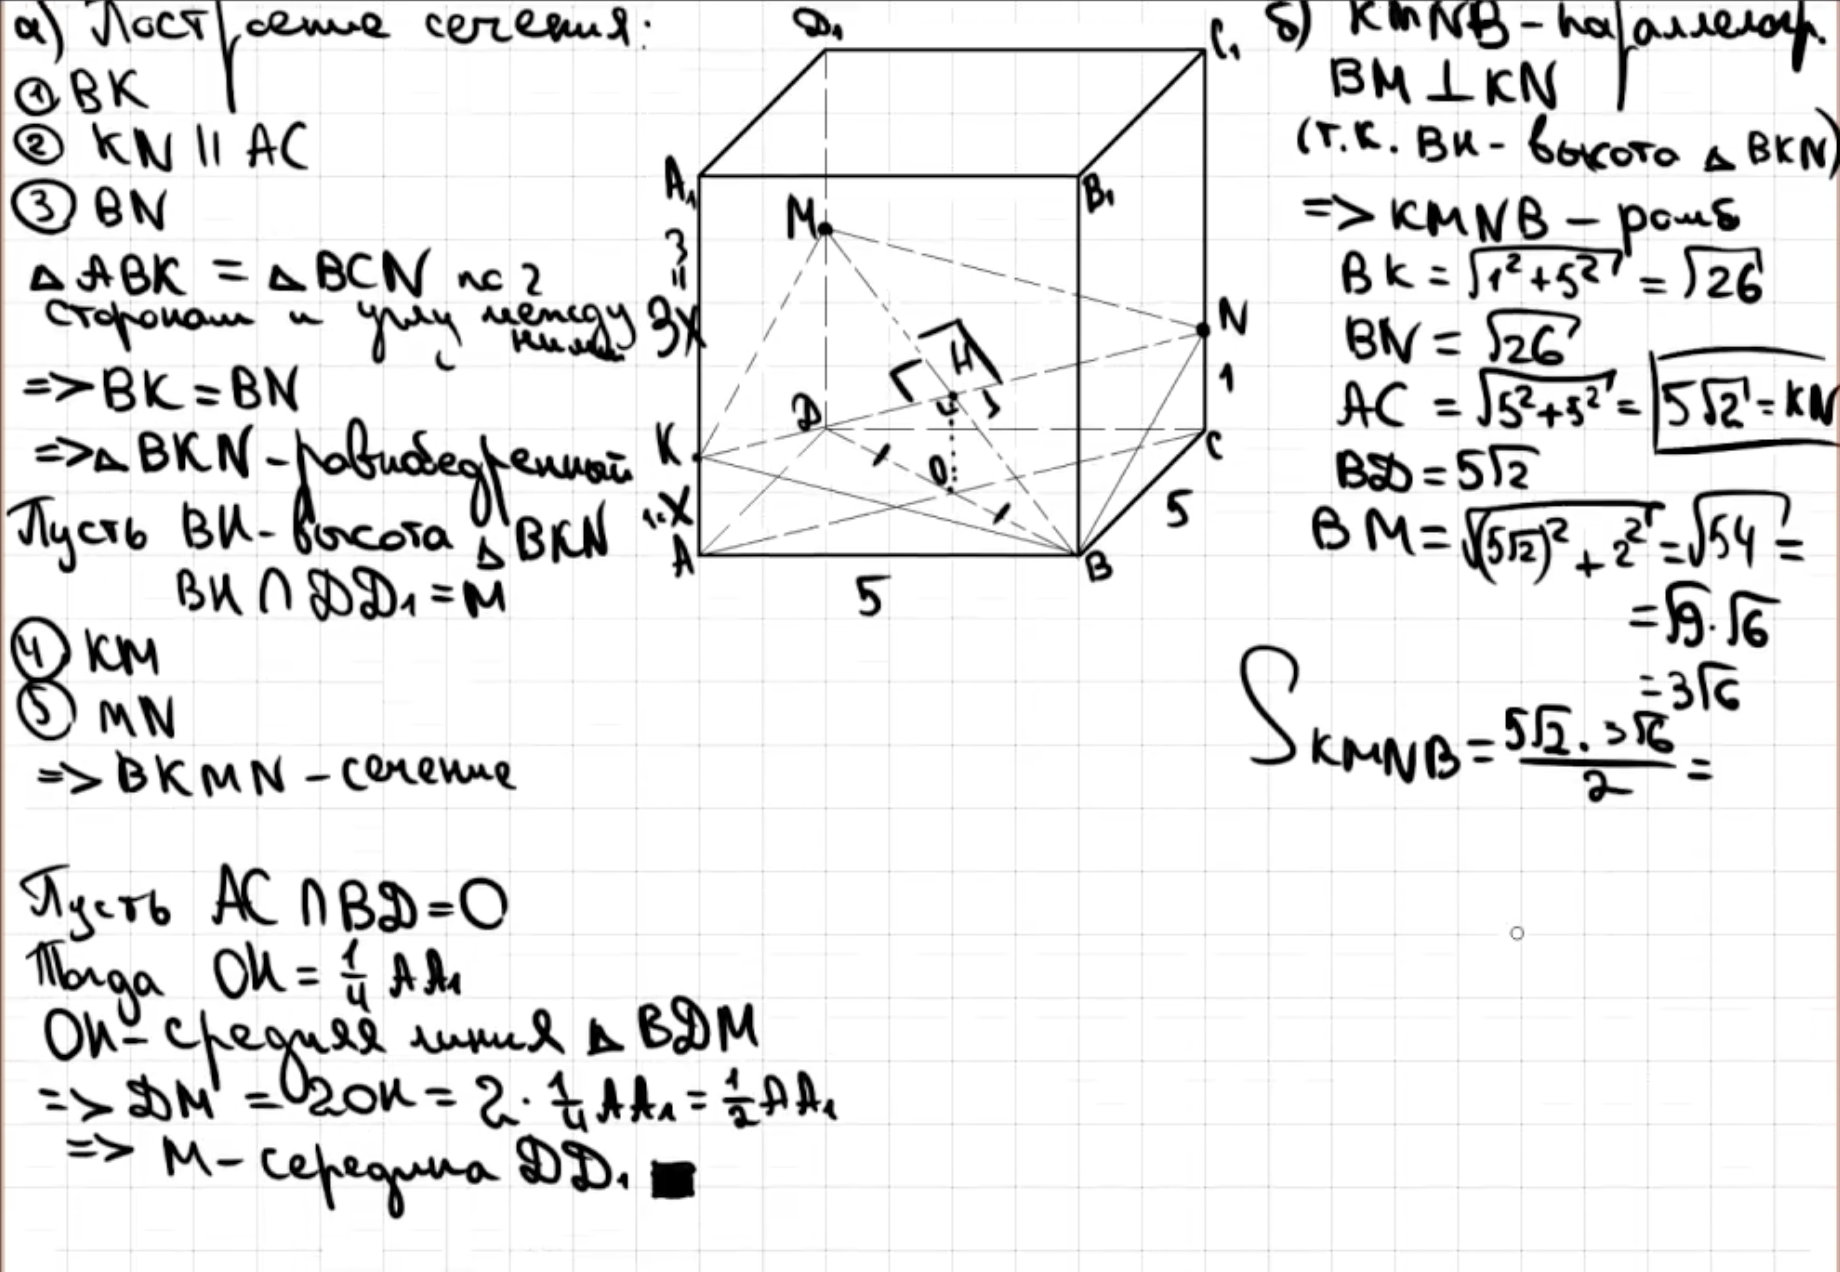 а) Построение сечения:
① BK
② KN || AC
③ BN
△ ABK = △ BCN по 2
сторонам и углу между
ними
=> BK = BN
=> △ BKN - равнобедренный
Пусть BH - высота △ BKN
BH ∩ DD₁ = M
④ KM
⑤ MN
=> BKMN - сечение
Пусть AC ∩ BD = O
Тогда OH = 1/4 AA₁
OH - средняя линия △ BDM
=> DM = 2OH = 2 · 1/4 AA₁ = 1/2 AA₁
=> M - середина DD₁ ■
D₁
C₁
A₁
B₁
M
3
=
3x
N
H
1
D
K
C
O
1·x
5
A
B
5
б) KMNB - параллелогр.
BM ⊥ KN
(т.к. BH - высота △ BKN)
=> KMNB - ромб
BK = √(1² + 5²) = √26
BN = √26
AC = √(5² + 5²) = 5√2 = KN
BD = 5√2
BM = √((5√2)² + 2²) = √54 =
= √9 · √6
= 3√6
S KMNB = (5√2 · 3√6)/2 =